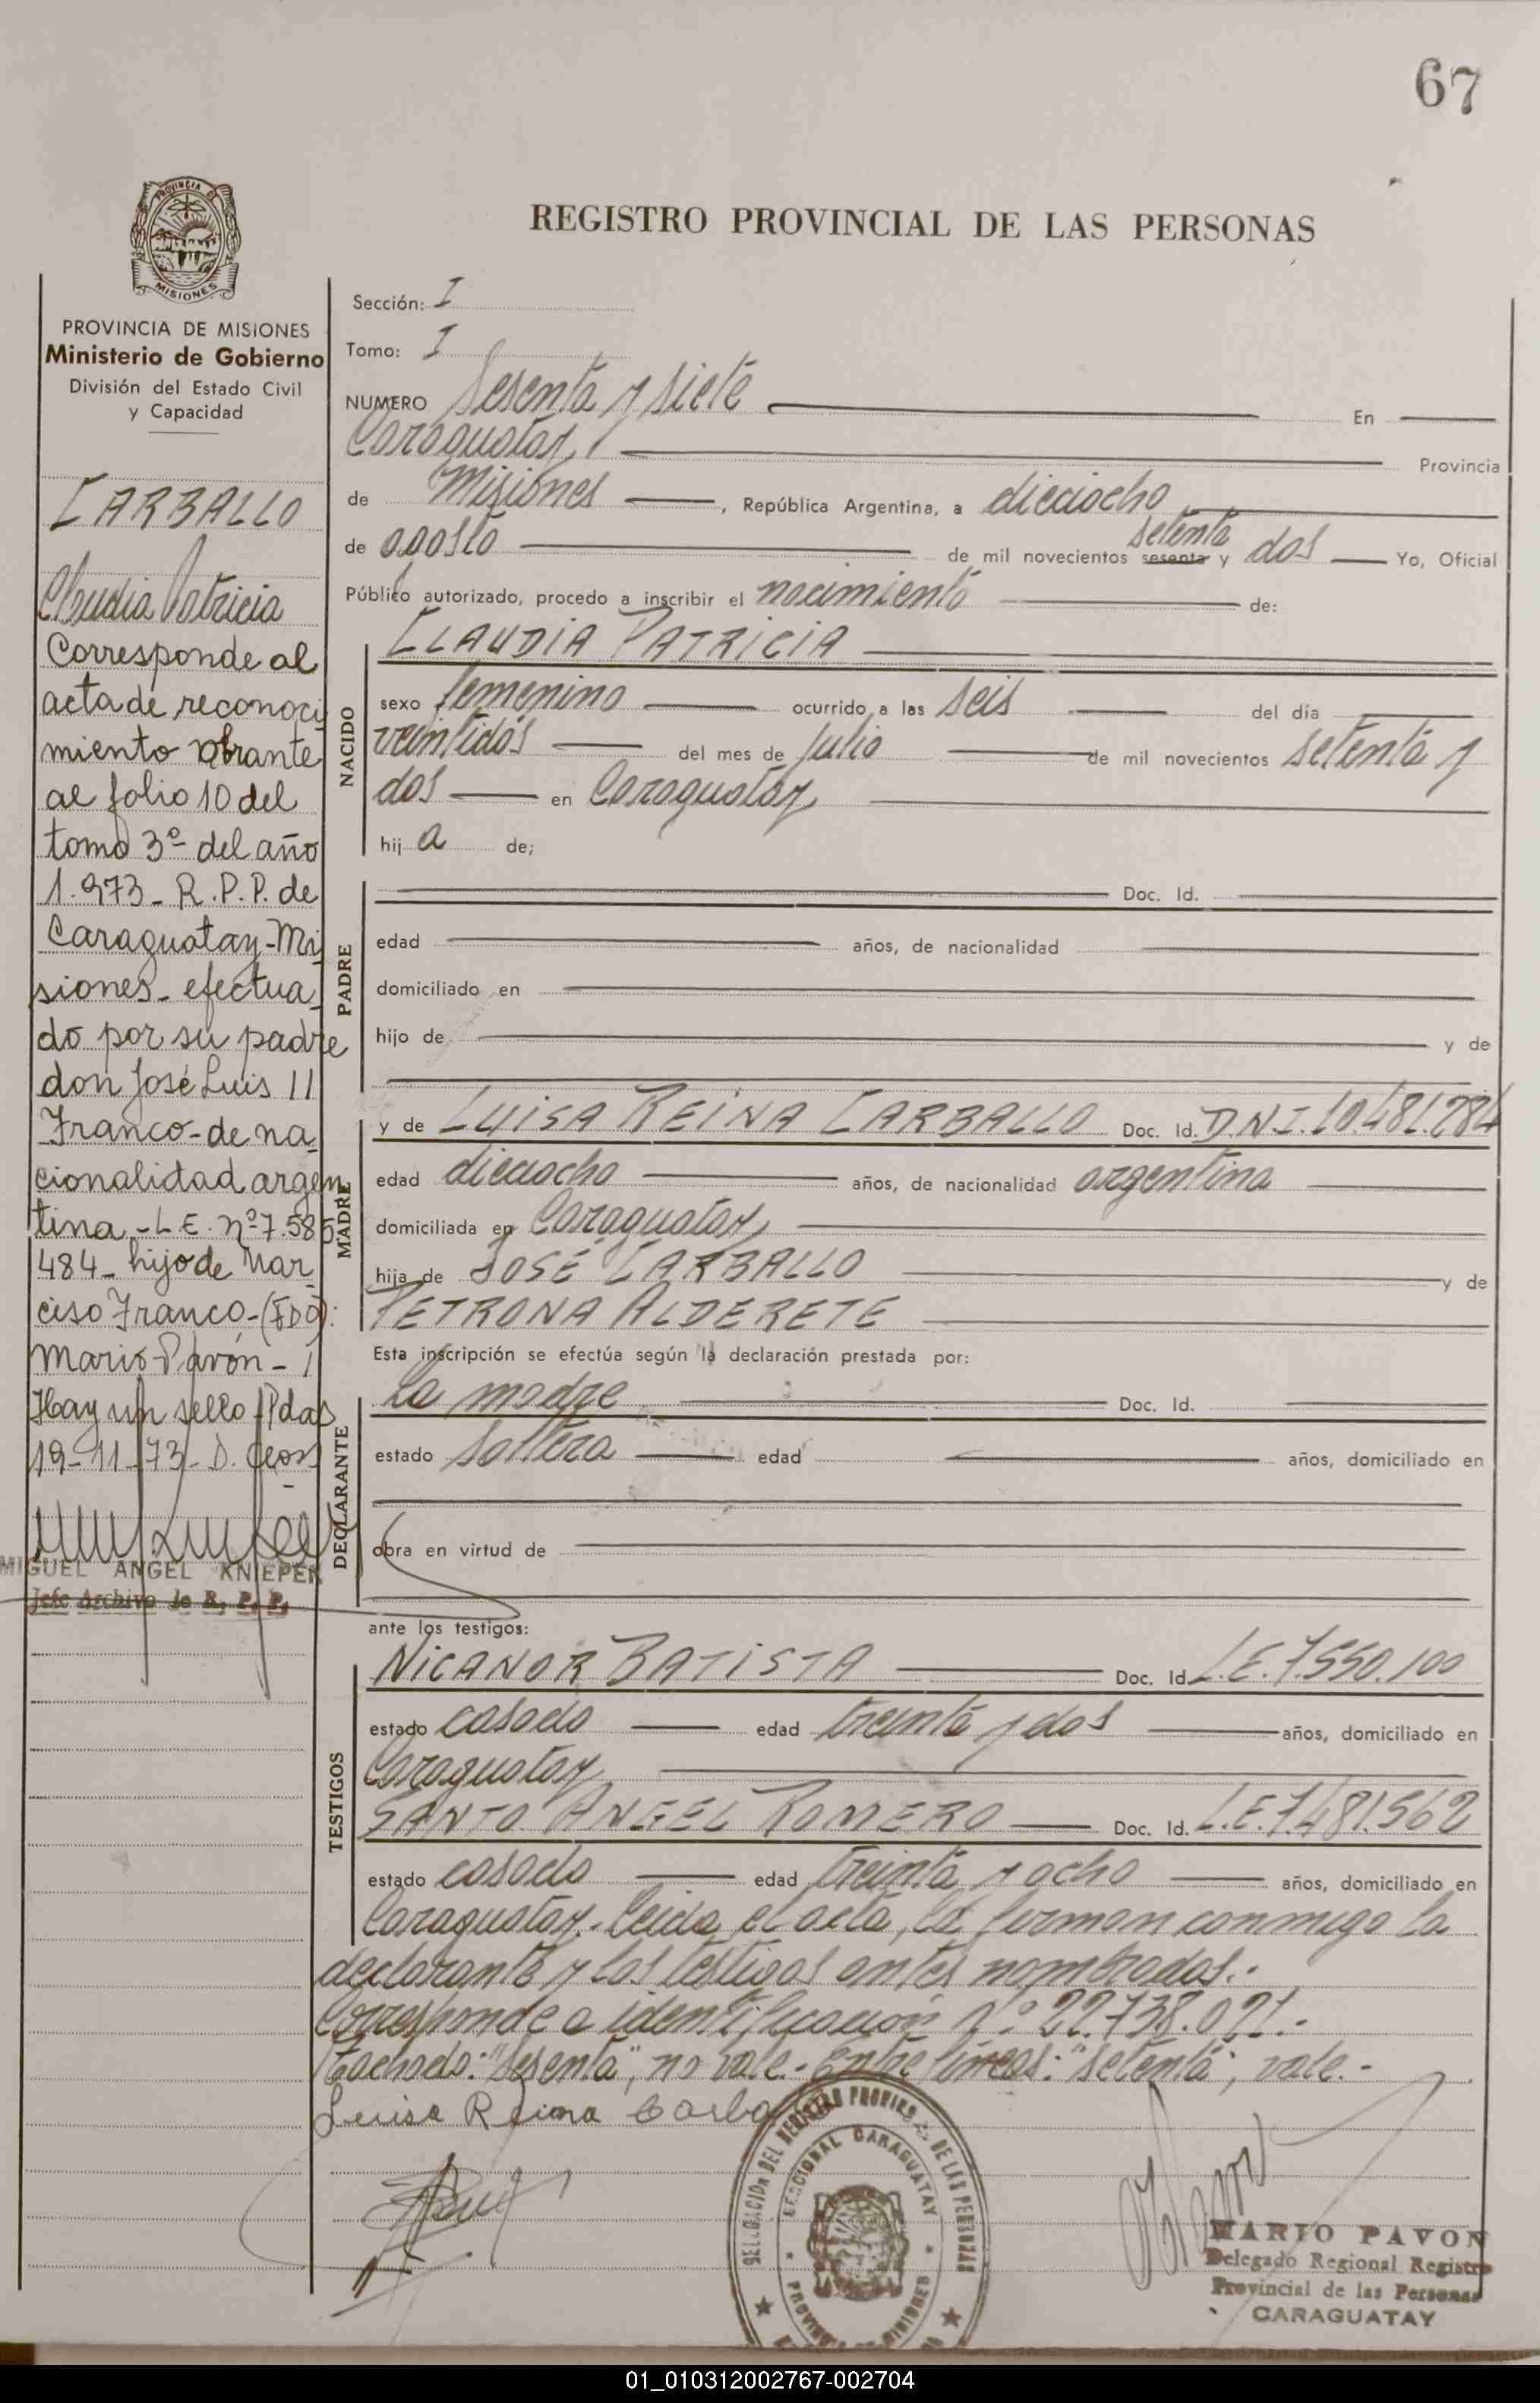 67
PROVINCIA DE
MISIONES
REGISTRO PROVINCIAL DE LAS PERSONAS
PROVINCIA DE MISIONES
Ministerio de Gobierno
División del Estado Civil
y Capacidad
CARBALLO
Claudia Patricia
Corresponde al
acta de reconoci
miento obrante
al folio 10 del
tomo 3º del año
1.973- R.P.P. de
Caraguatay-Mi
siones- efectua
do por su padre
don José Luis //
Franco-de na
cionalidad argen
tina-L.E. nº 7.585.
484- hijo de Nar
ciso Franco-(FDO):
Mario Pavón- /
Hay un sello-Pdas
19-11-73- D.
MIGUEL ANGEL KNIEPER
Jefe Archivo de R. P. P.
Sección: I
Tomo: I
NUMERO Sesenta y siete En
Caraguatay, Provincia
de Misiones , República Argentina, a dieciocho
de agosto de mil novecientos sesenta setenta y dos Yo, Oficial
Público autorizado, procedo a inscribir el nacimiento de:
NACIDO
CLAUDIA PATRICIA
sexo femenino ocurrido a las seis del día
veintidós del mes de julio de mil novecientos setenta y
dos en Caraguatay
hij a de;
PADRE
Doc. Id.
edad años, de nacionalidad
domiciliado en
hijo de y de
MADRE
y de LUISA REINA CARBALLO Doc. Id. D.N.I. 10.481.284
edad dieciocho años, de nacionalidad argentina
domiciliada en Caraguatay
hija de JOSÉ CARBALLO y de
PETRONA ALDERETE
Esta inscripción se efectúa según la declaración prestada por:
DECLARANTE
La madre Doc. Id.
estado soltera edad años, domiciliado en
obra en virtud de
ante los testigos:
TESTIGOS
NICANOR BATISTA Doc. Id. L.E. 7.550.100
estado casado edad treinta y dos años, domiciliado en
Caraguatay
SANTO ANGEL ROMERO Doc. Id. L.E. 7.481.562
estado casado edad treinta y ocho años, domiciliado en
Caraguatay. Leida el acta, la firman conmigo la
declarante y los testigos antes nombrados.-
Corresponde a identificación Nº 22.738.021.-
Tachado: "sesenta", no vale.- Entre líneas: "setenta", vale.-
Luisa Reina Carballo
DELEGACION DEL REGISTRO PROVINCIAL DE LAS PERSONAS
SECCIONAL CARAGUATAY
PROVINCIA DE MISIONES
MARIO PAVON
Delegado Regional Registro
Provincial de las Personas
CARAGUATAY
01_010312002767-002704